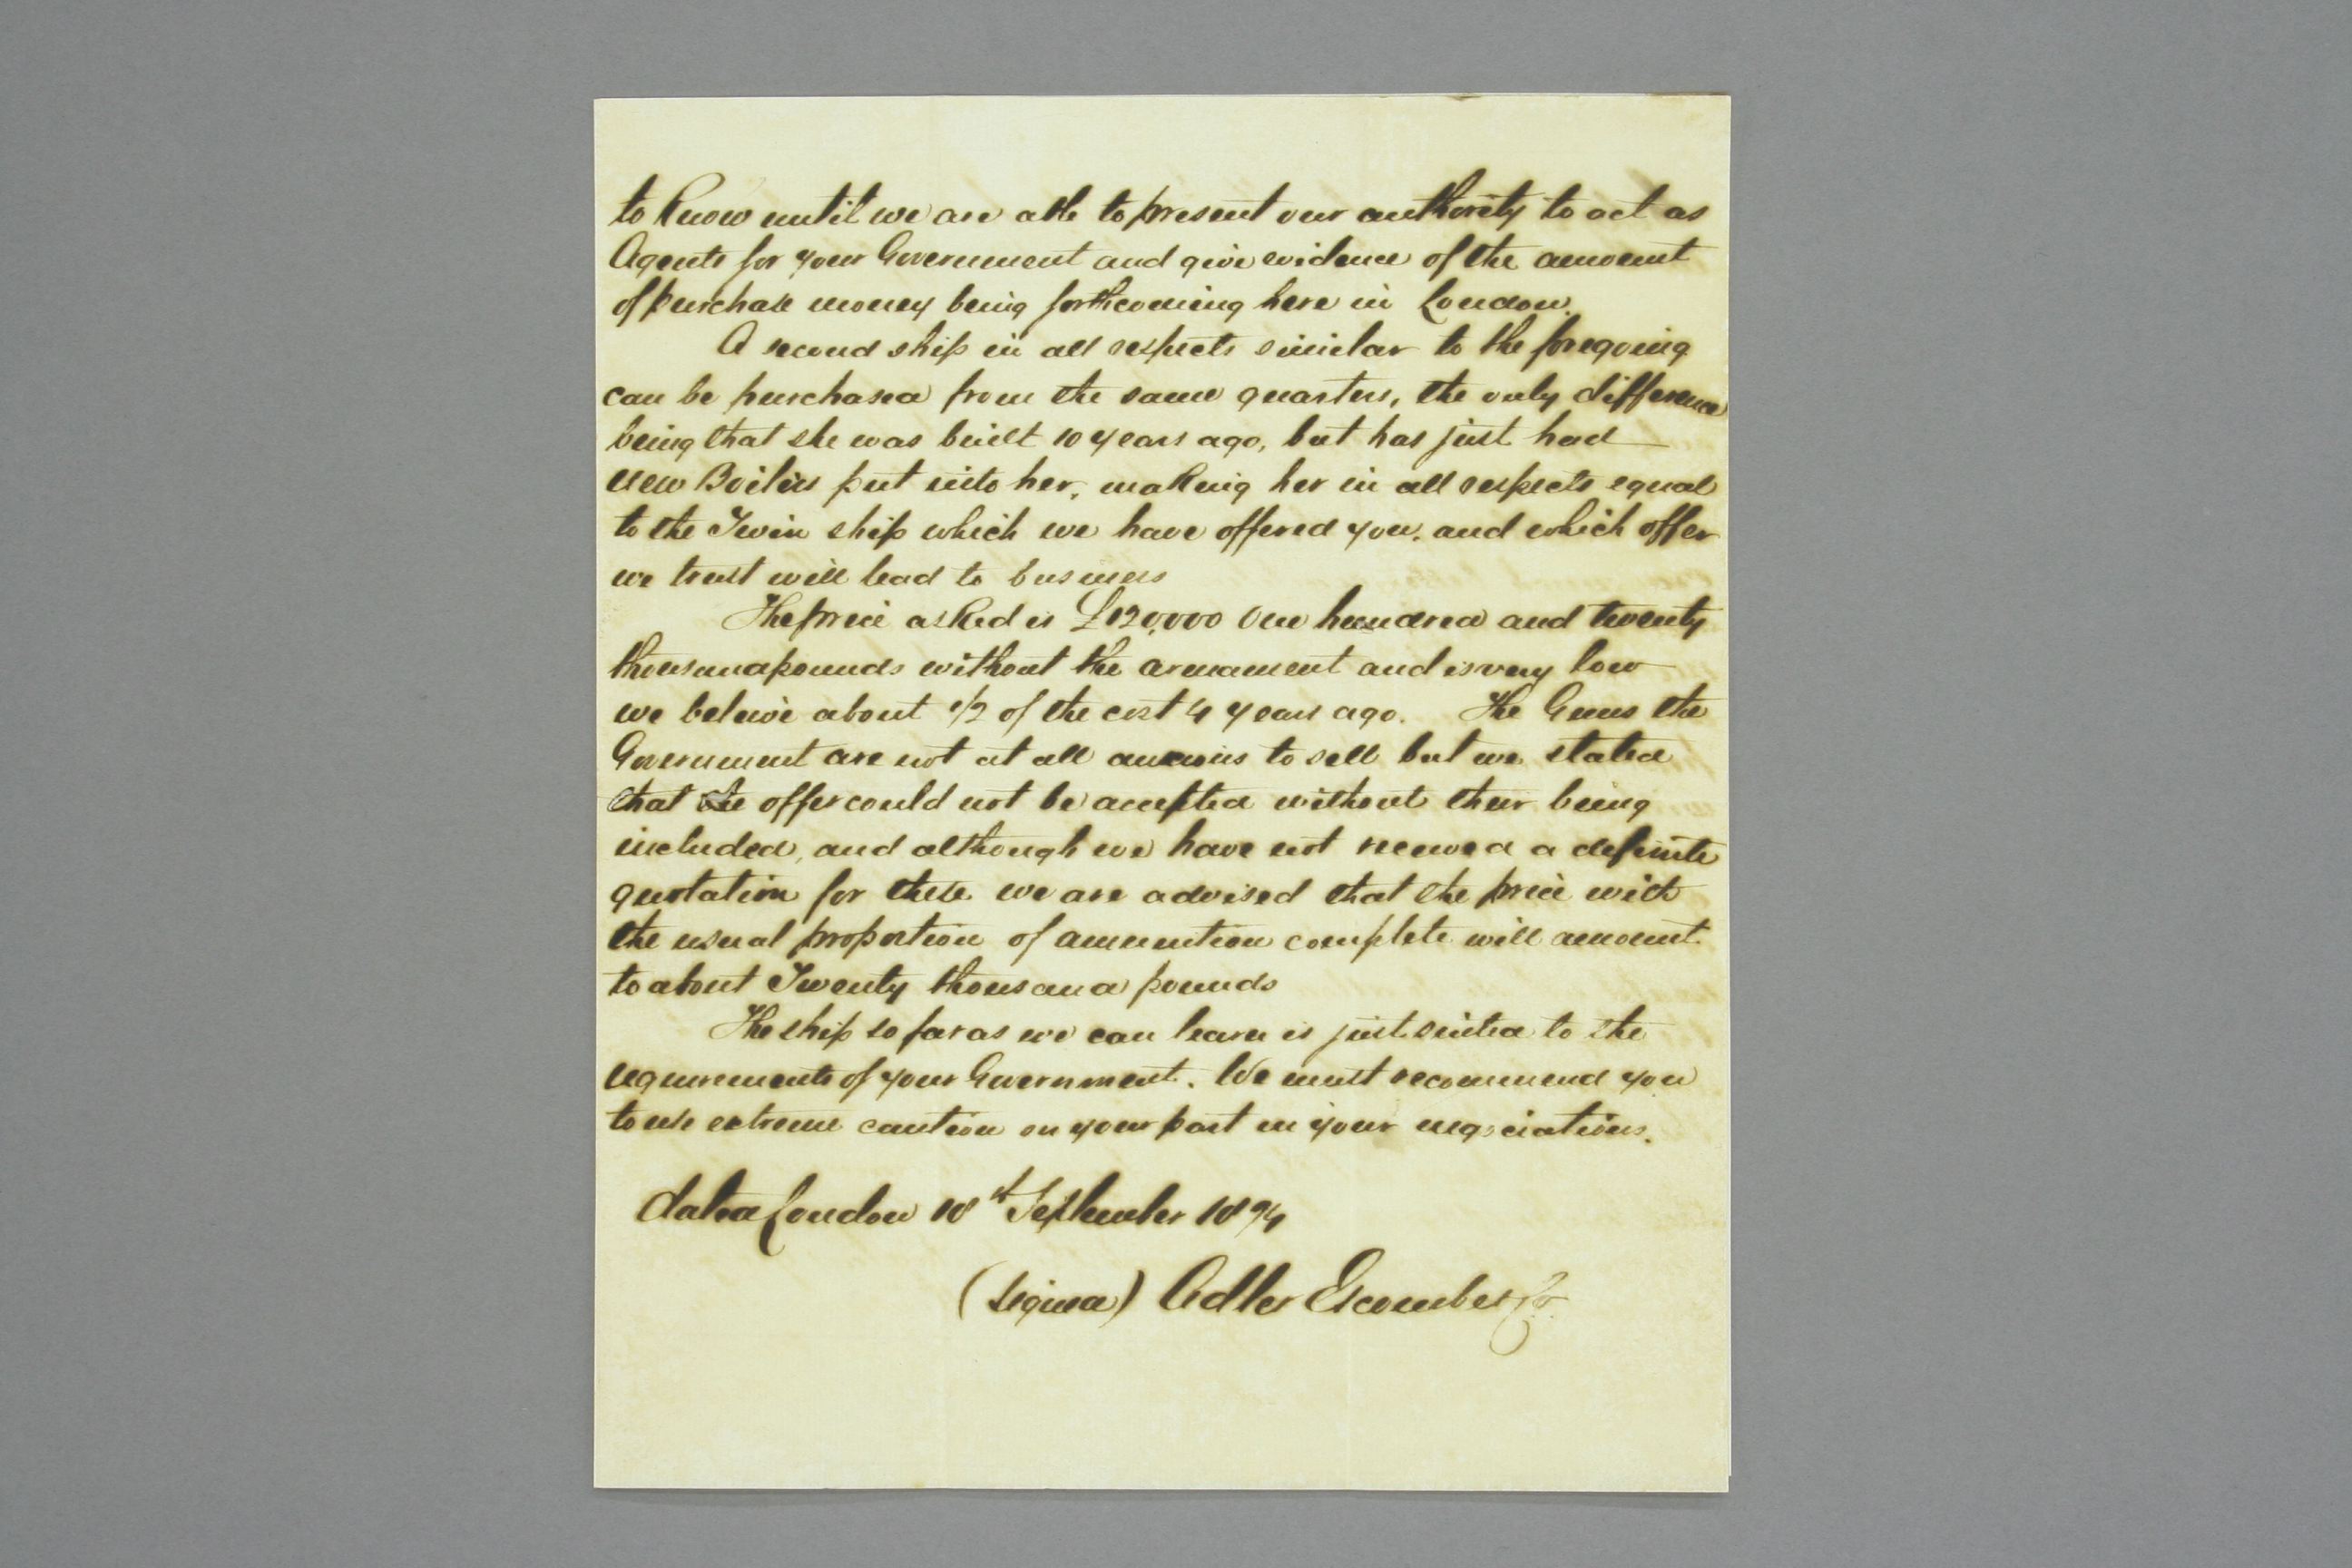 to know until we are able to present our authority to act as
Agents for your Government and give evidence of the amount
of purchase money being forthcoming here in London.
A second ship in all respects similar to the foregoing
can be purchased from the same quarters, the only difference
being that she was built 10 years ago, but has just had
new Boilers put into her, making her in all respects equal
to the Twin ship which we have offered you, and which offer
we trust will lead to business
The price asked is £120,000 One hundred and twenty
thousand pounds without the armament and is very low
we beleive about 1/2 of the cost 4 years ago. The Guns the
Government are not at all anxious to sell but we stated
that the offer could not be accepted without their being
included, and although we have not received a definite
quotation for these we are advised that the price with
the usual proportion of ammunition complete will amount
to about Twenty thousand pounds
The ship so far as we can learn is just suited to the
requirements of your Government. We must recommend you
to use extreme caution on your part in your negociations.
dated London 18th September 1894
(signed) Adler Escombe & Co.